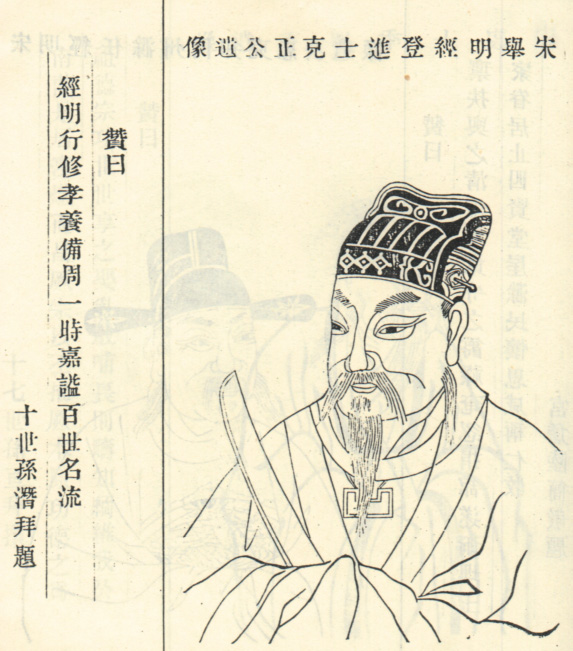 宋舉明經登進士克正公遺像
贊曰
經明行修孝養備周一時嘉謚百世名流
十世孫潛拜題